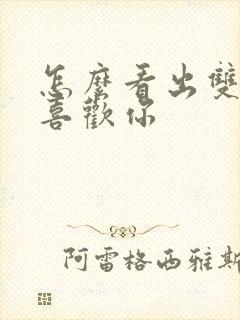 怎麼看出雙
喜歡你
阿雷格西雅斯